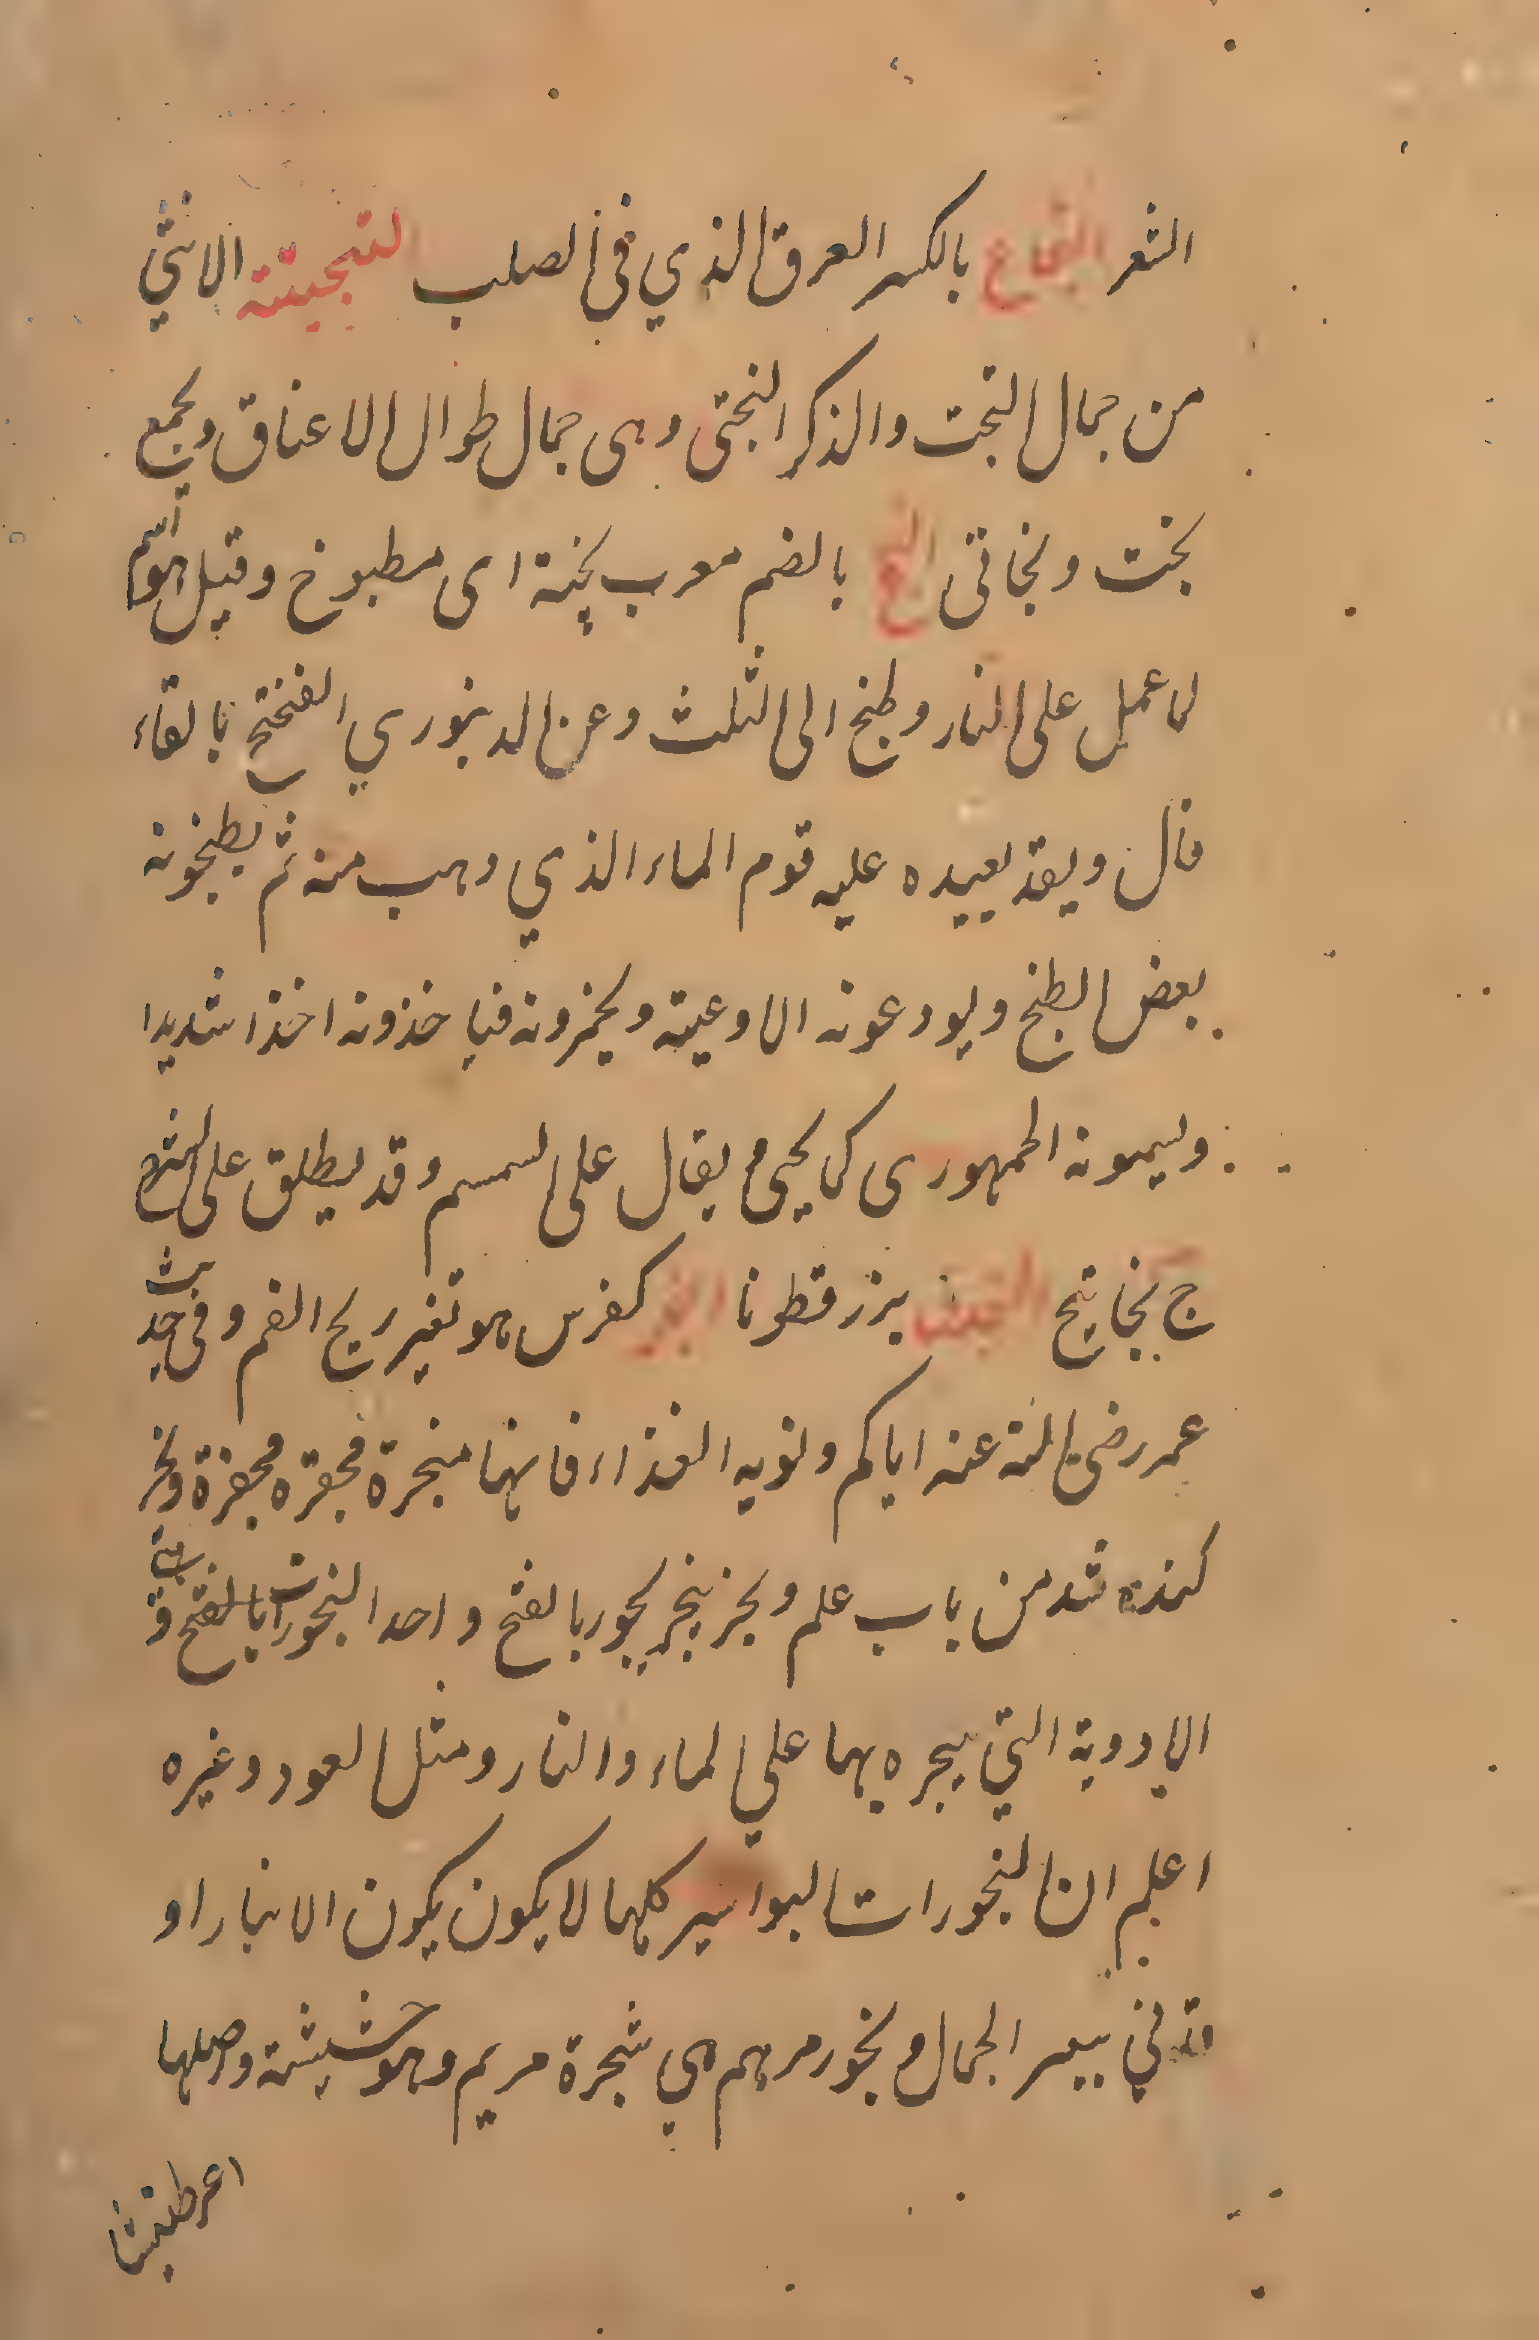 الشعر البخاع بالكسر العرق الذي فى الصلب البختية الانثي
من جمال البخت والذكر البختى وهى جمال طوال الاعناق ويجمع
بخت وبخاتى البختج بالضم معرب پخته اى مطبوخ وقيل هو اسم
لما عمل على النار وطبخ الى الثلث وعن الدينوري الفختج بالفاء
قال ويقد يعيده عليه قوم الماء الذي وهب منه ثم يطبخونه
بعض الطبخ ويودعونه الاوعية ويخمرونه فياخذونه اخذا شديدا
ويسمونه الجمهورى كما يجى م يقال على السمسم وقد يطلق على
ج بخاتيج بزر قطونا البخر كفرس هو تغير ريح الفم وفى حديث
عمر رضى الله عنه اياكم ونومه الغذاء فانها مبخرة مجفرة وبخر
كنده شد من باب علم وبخر يبخر بخور بالفتح واحد البخورات بالفتح
الادوية التي يبخره بها على الماء والنار ومثل العود وغيره
اعلم ان البخورات البواسير كلها لا يكون يكون الا بنار او
قدني ببعر الجمال م بخور مريم هي شجرة مريم وهو حشيشة واصلها
اعرطنيثا